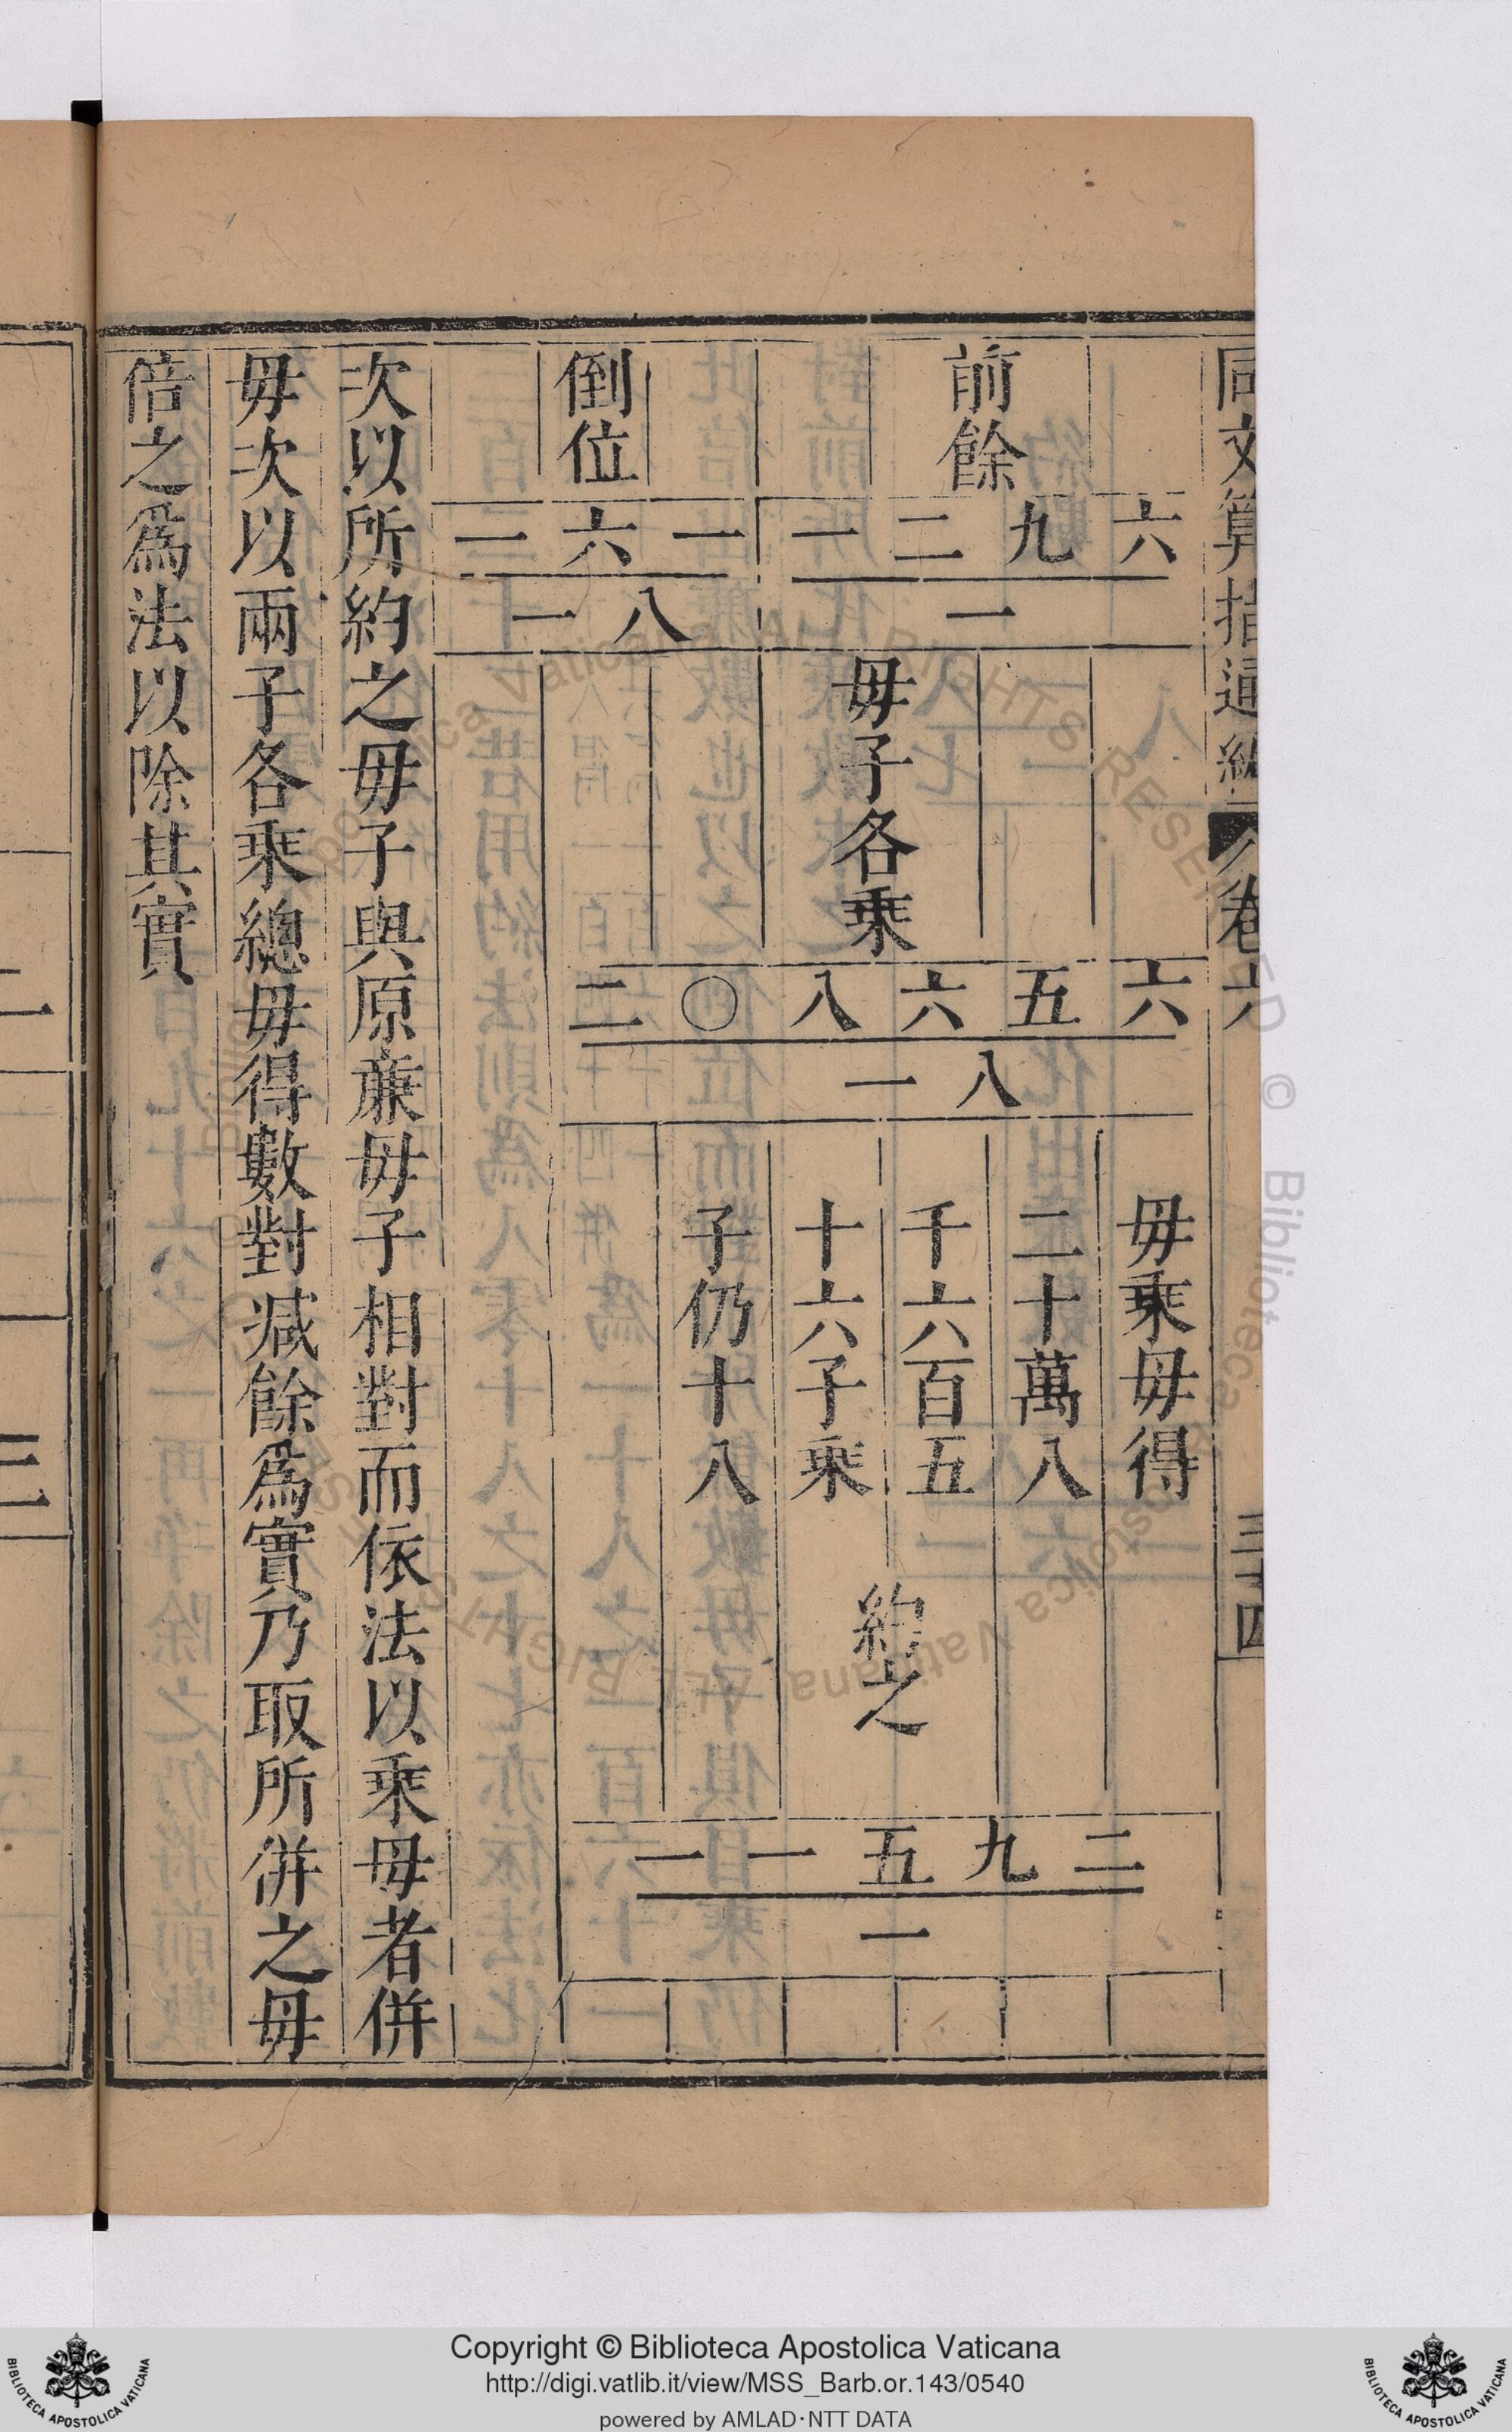 同文算指通編 卷六 三十四
前餘
一二九六
一
倒位
一六一
一八
毋子各乘
二〇八六五六
一八
毋乘毋得
二十萬八
千六百五
十六子乘
子仍十八
約之
一一五九二
一
次以所約之毋子與原廉毋子相對而依法以乘毋者併
毋次以兩子各乘總毋得數對減餘爲實乃取所併之毋
倍之爲法以除其實
Copyright © Biblioteca Apostolica Vaticana
http://digi.vatlib.it/view/MSS_Barb.or.143/0540
powered by AMLAD·NTT DATA
BIBLIOTECA APOSTOLICA VATICANA
BIBLIOTECA APOSTOLICA VATICANA